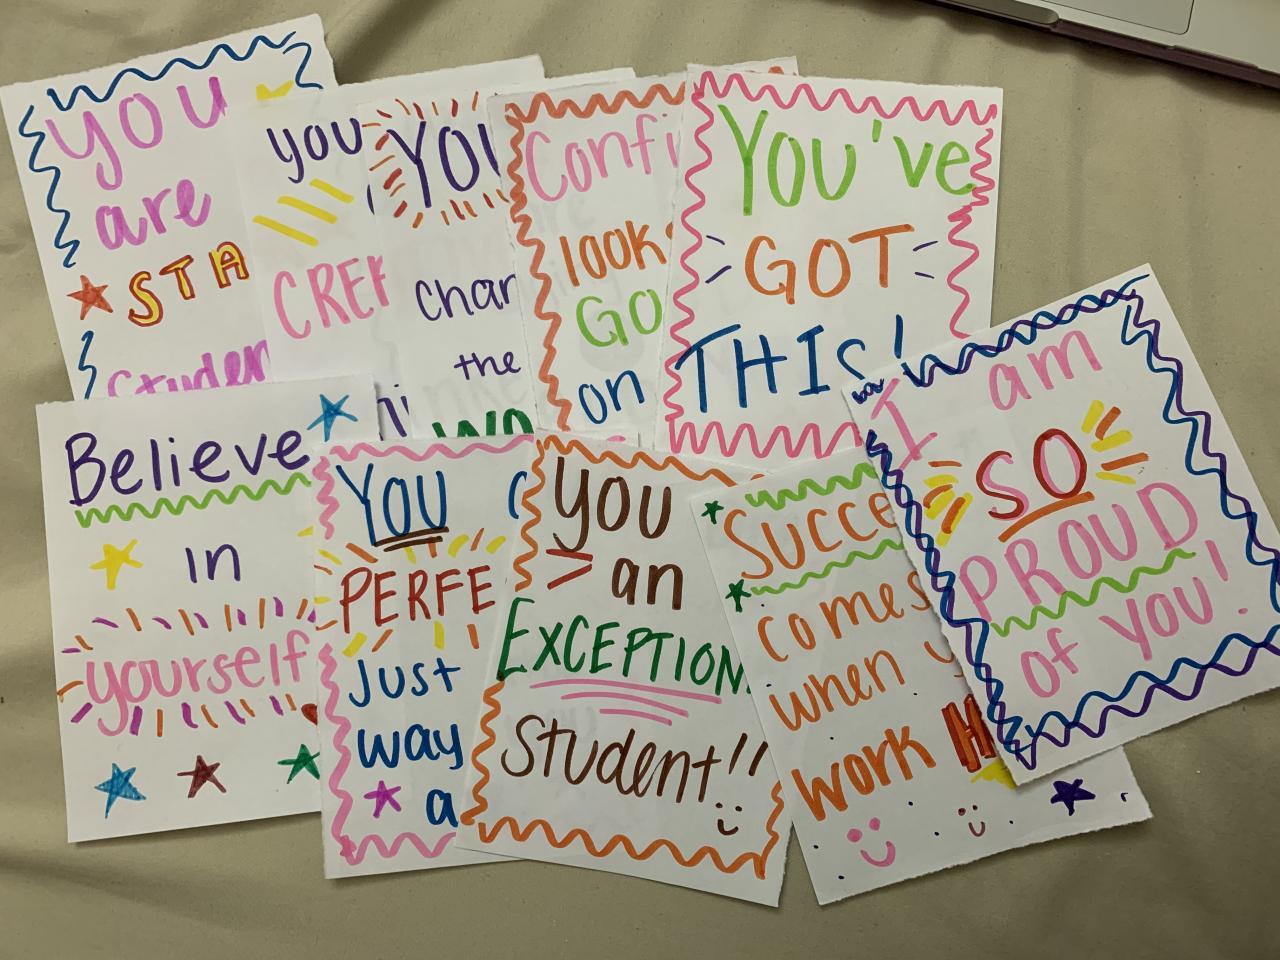 you
are
STA
Studen
you
CREA
YOU
chan
the
WO
Confi
looks
GO
on
YOU've
GOT
THIS!
Believe
in
yourself
YOU
PERFE
Just
way
a
you
an
EXCEPTION
Student!!
SUCCE
comes
when y
work H
I am
SO
PROUD
of YOU!